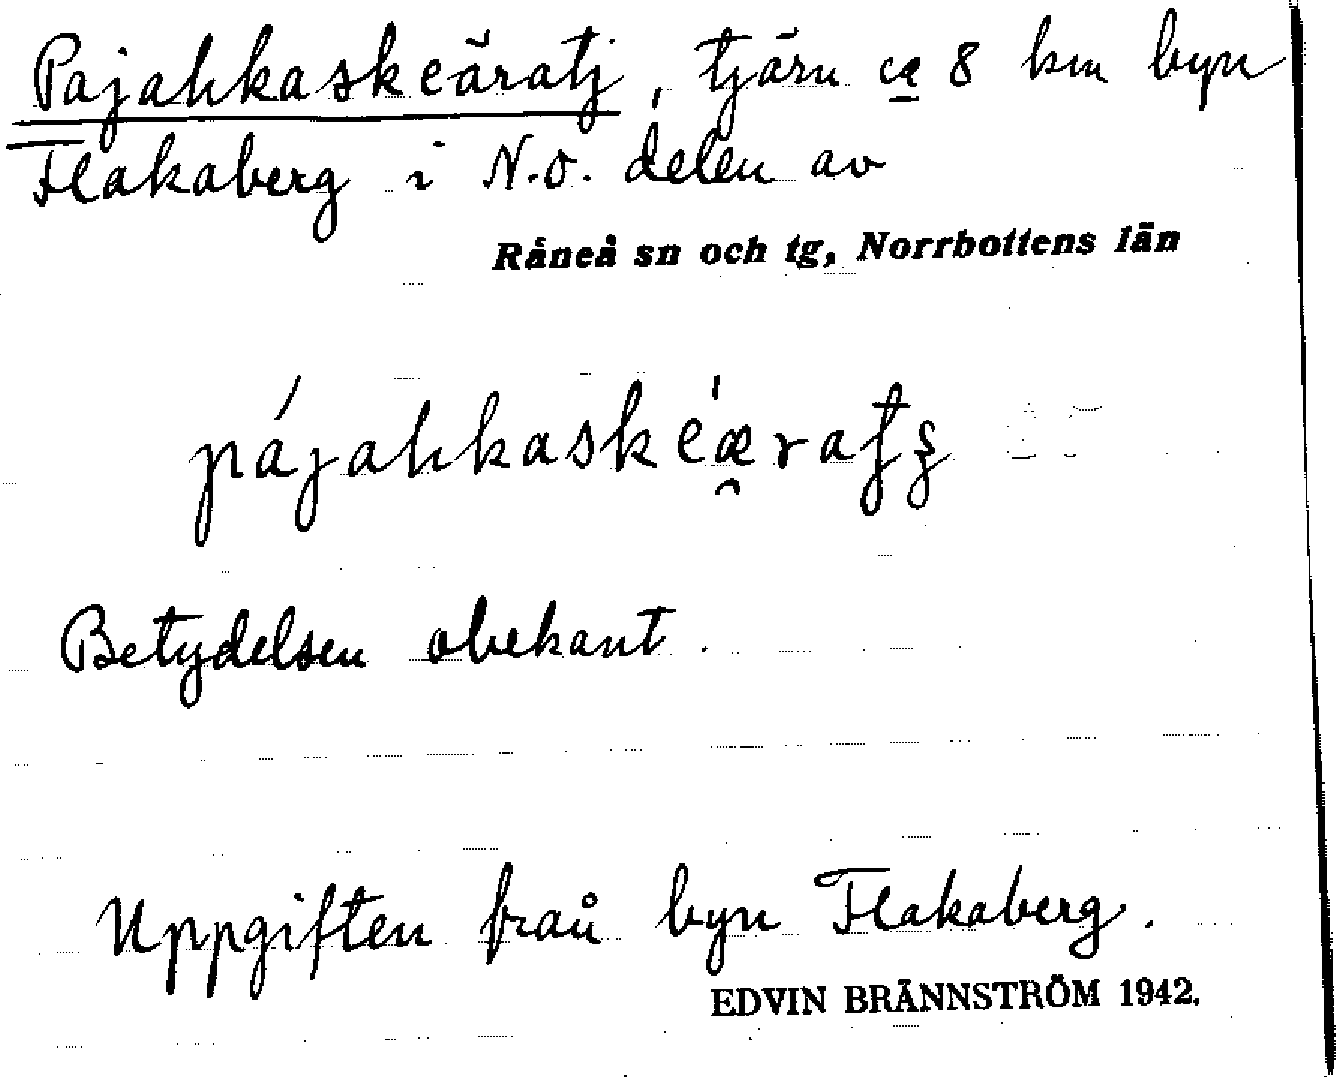 Pajahkaskeäratj, tjärn ca 8 km byn
Flakaberg i N.O. delen av
Råneå sn och tg, Norrbottens län
pájahkaskéæ̯ratʒ
Betydelsen obekant.
Uppgiften från byn Flakaberg.
EDVIN BRÄNNSTRÖM 1942.